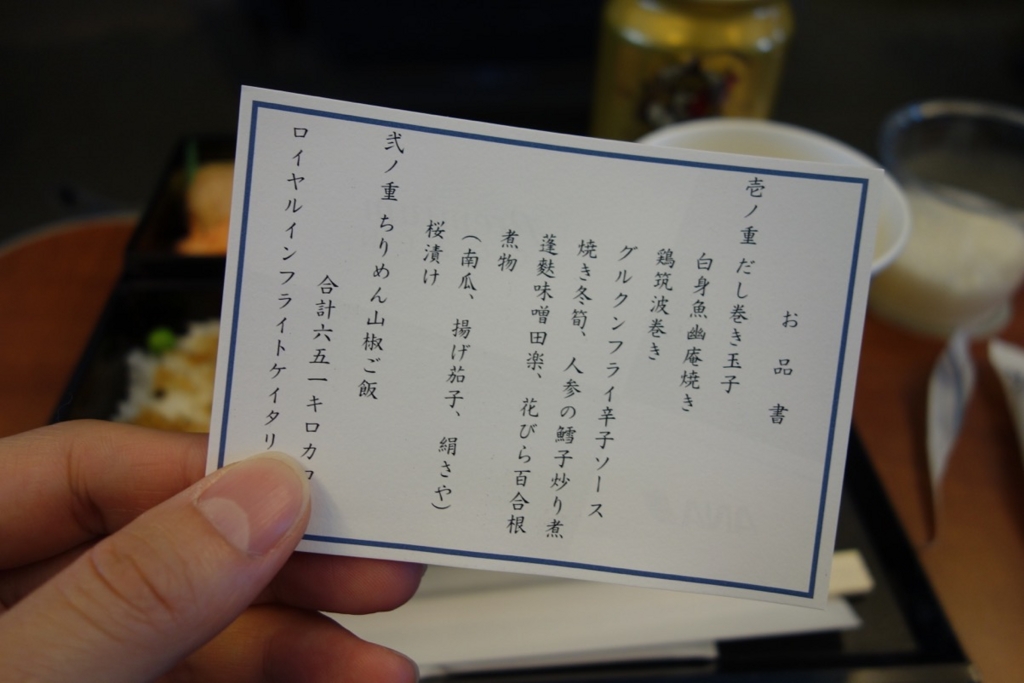 お品書
壱ノ重 だし巻き玉子
白身魚幽庵焼き
鶏筑波巻き
グルクンフライ辛子ソース
焼き冬筍、人参の鱈子炒り煮
蓬麩味噌田楽、花びら百合根
煮物
（南瓜、揚げ茄子、絹さや）
桜漬け
弐ノ重 ちりめん山椒ご飯
合計六五一キロカロ
ロイヤルインフライトケイタリ